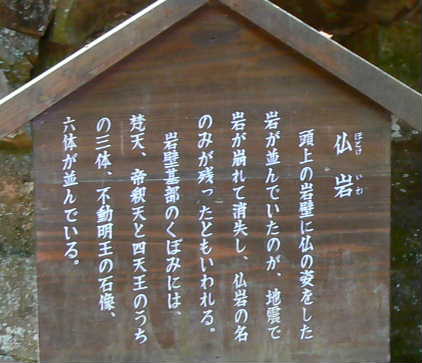 仏岩
ほとけ いわ
頭上の岩壁に仏の姿をした
岩が並んでいたのが、地震で
岩が崩れて消失し、仏岩の名
のみが残ったともいわれる。
岩壁基部のくぼみには、
梵天、帝釈天と四天王のうち
の三体、不動明王の石像、
六体が並んでいる。